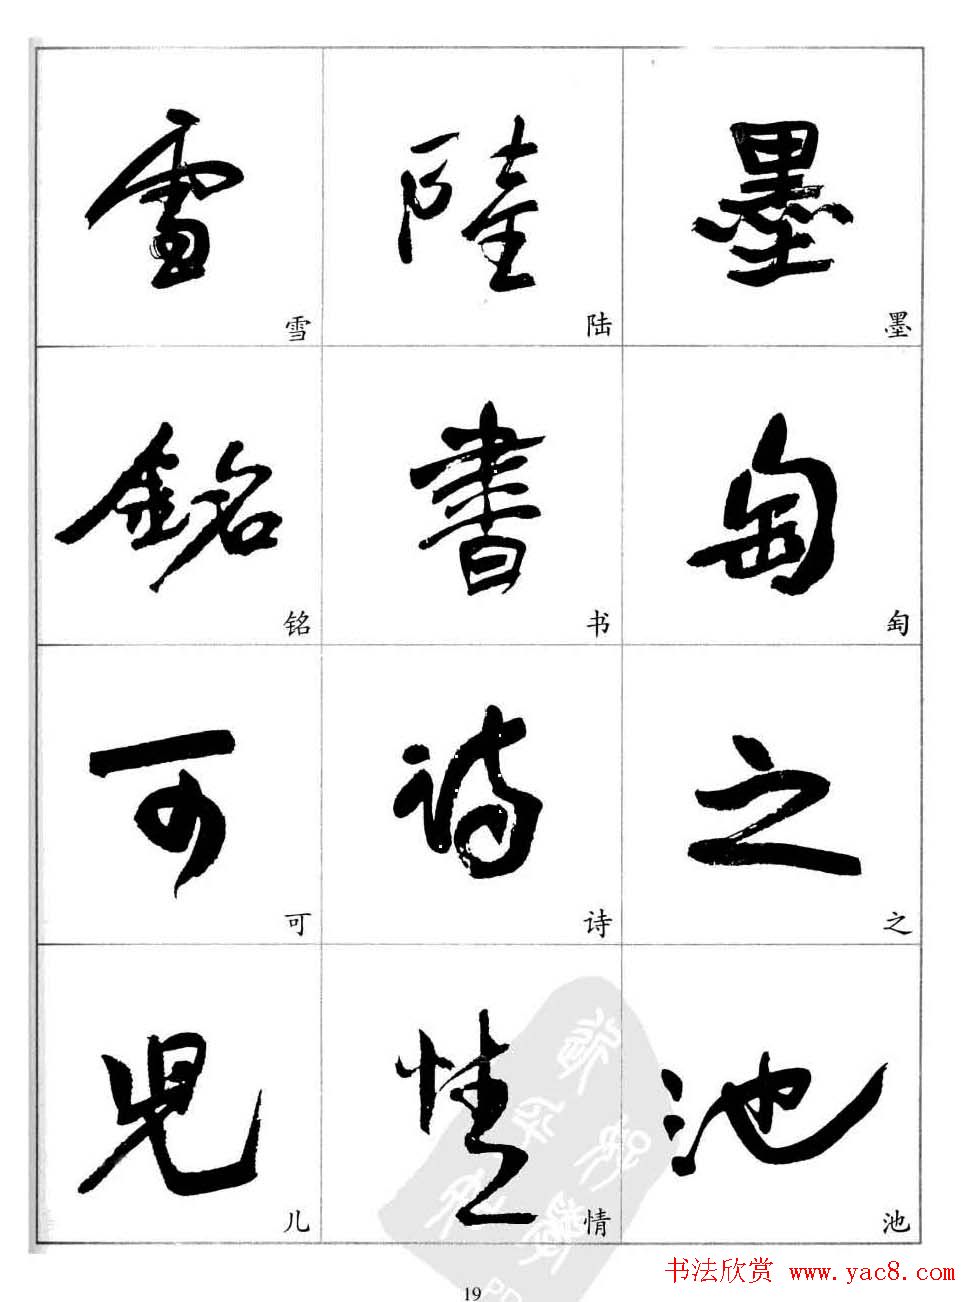 雪 陸 墨
雪 陆 墨
銘 書 匋
铭 书 匋
可 詩 之
可 诗 之
兒 情 池
儿 情 池
书法欣赏 www.yac8.com
19